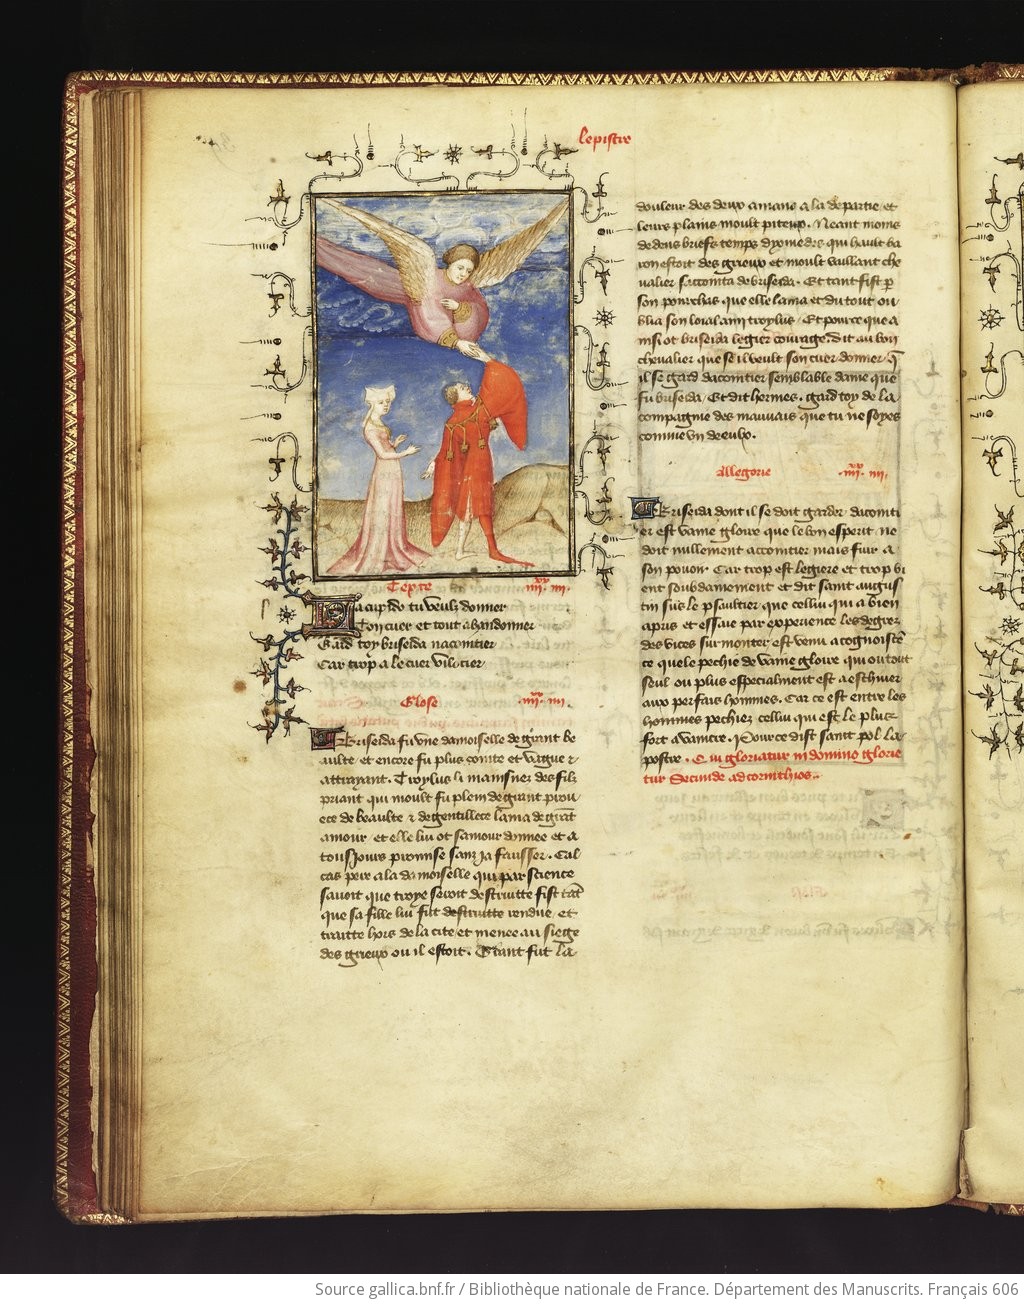 lepistre
Texte .iiii.xx iiii.
Se a cupido tu veulz donner
Ton cuer et tout abandonner
Gard toy briseida nacointier
Car trop a le cuer vilotier
Glose .iiii.xx iiii.
Briseida fu vne damoiselle de grant be
aulte et encore fu plus cointe et vague &
attrayant. Troylus li mainsnez des filz
priant qui moult fu plein de grant prou
ece de beaulte & de gentillece lama de grāt
amour et elle lui ot samour donnee et a
tousjours promise sanz ja fausser. Cal
cas pere a la damoiselle qui par science
sauoit que troye seroit destruitte fist tāt
que sa fille lui fut rendue et
traitte hors de la cite et menee au siege
des grieux ou il estoit. Grant fut la
douleur des deux amans a la departie et
leurs plains moult piteux. Neant moins
dedens briefs temps dyomedes qui hault ba
ron estoit des grieux et moult vaillant che
ualier sacointa de briseida. Et tant fist p
son pourchas que elle lama et du tout ou
blia son loial ami troylus. Et pource que a
insi ot briseida legier courage, dit au bon
cheualier que se il veult son cuer donner q̄
il se gard dacointier semblable dame que
fu briseida. Et dit hermes. gard toy de la
compagnie des mauuais que tu ne soyes
comme vn deeulx.
Allegorie .iiii.xx iiii.
Briseida dont il se doit garder dacointi
er est vaine gloire que le bon esperit ne
doit nullement accointier mais fuir a
son pouoir. Car trop est legiere et trop vi
ent soubdainement et dit saint augus
tin sus le psaultier que cellui qui a bien
apris et essaie par experience les degrez
des vices surmonter est venu a cognoissā
ce que le pechie de vaine gloire qui ou tout
seul ou plus especialment est a eschiuer
aux perfais hommes. Car ce est entre les
hommes pechiez cellui qui est le plus
fort a vaincre. Pource dist saint pol la
postre. Qui gloriatur in domino glorie
tur Secunde ad corinthios.
Source gallica.bnf.fr / Bibliothèque nationale de France. Département des Manuscrits. Français 606